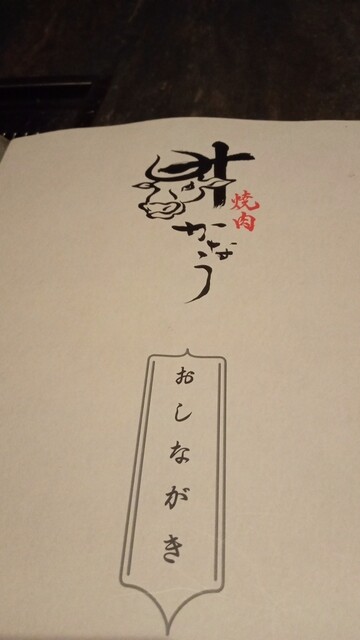 叶
焼肉
かなう
おしながき